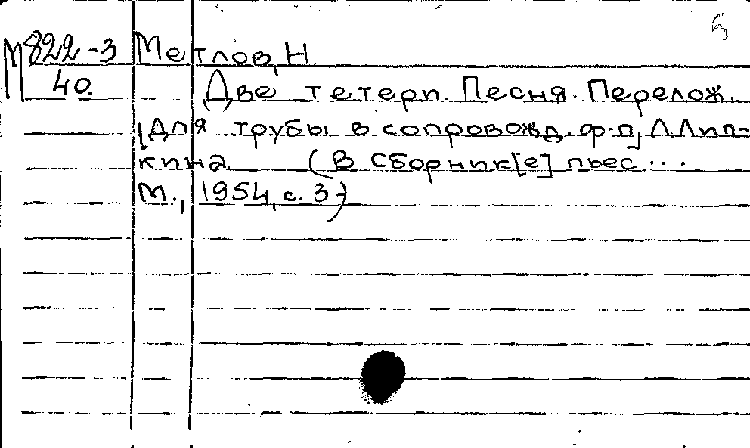 М822-3 Метлов, Н
40. Две тетерп. Песня. Перелож.
[для трубы в сопровожд. ф-п] Л.Лип-
кина (В Сборник[е] пьес...
М., 1954, с. 3)